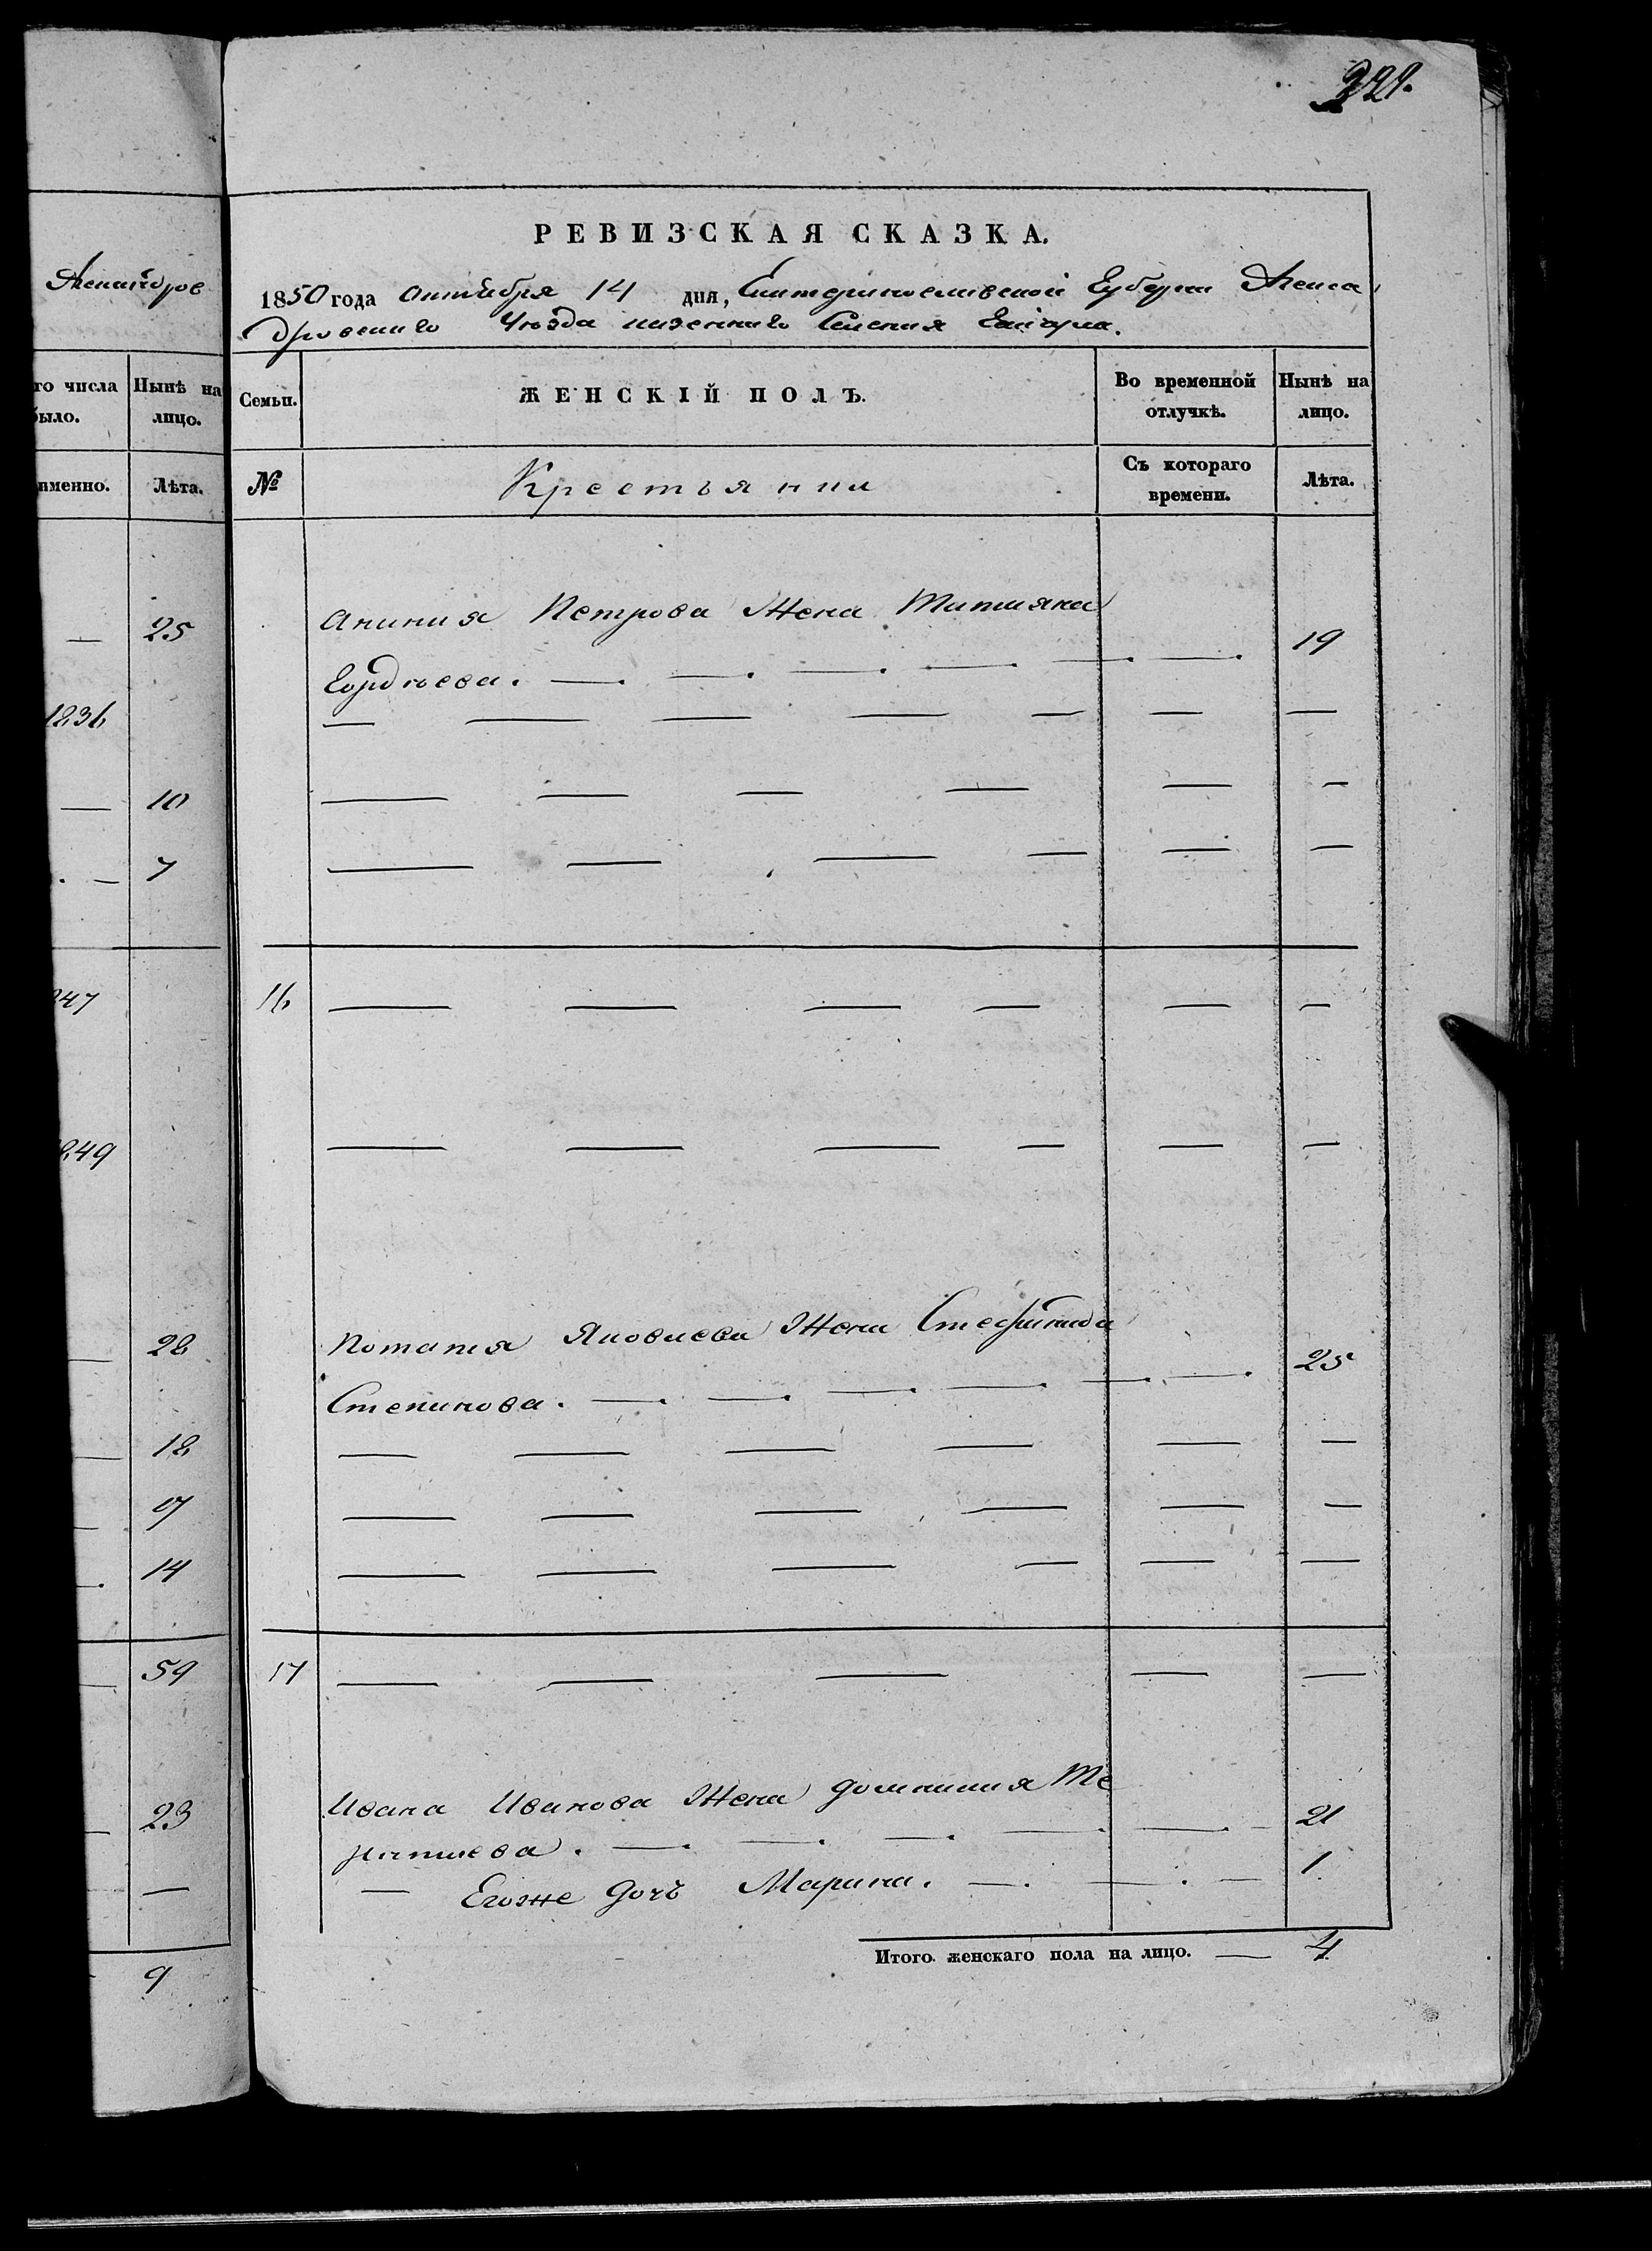 322.
РЕВИЗСКАЯ СКАЗКА.
1850 года октября 14 дня, Екатеринославской Губерніи Алекса
дровскаго Уѣзда казеннаго Селенія
ЖЕНСКІЙ ПОЛЪ.
Семьи.
Во временной отлучкѣ.
Нынѣ на лицо.
№
Крестьянки
Съ котораго времени.
Лѣта.
Анания Петрова Жена Татияна
Гордѣева. 19
16
Потапия Яковлева Жена Стефанида
Степанова. 25
17
Ивана Иванова Жена Домникия Те
рентиева. 21
Егоже дочь Марина. 1
Итого женскаго пола на лицо. 4
Александров
го числа
было.
Нынѣ на
лицо.
именно.
Лѣта.
25
1836
10
7
847
1849
28
18
17
14
59
23
9